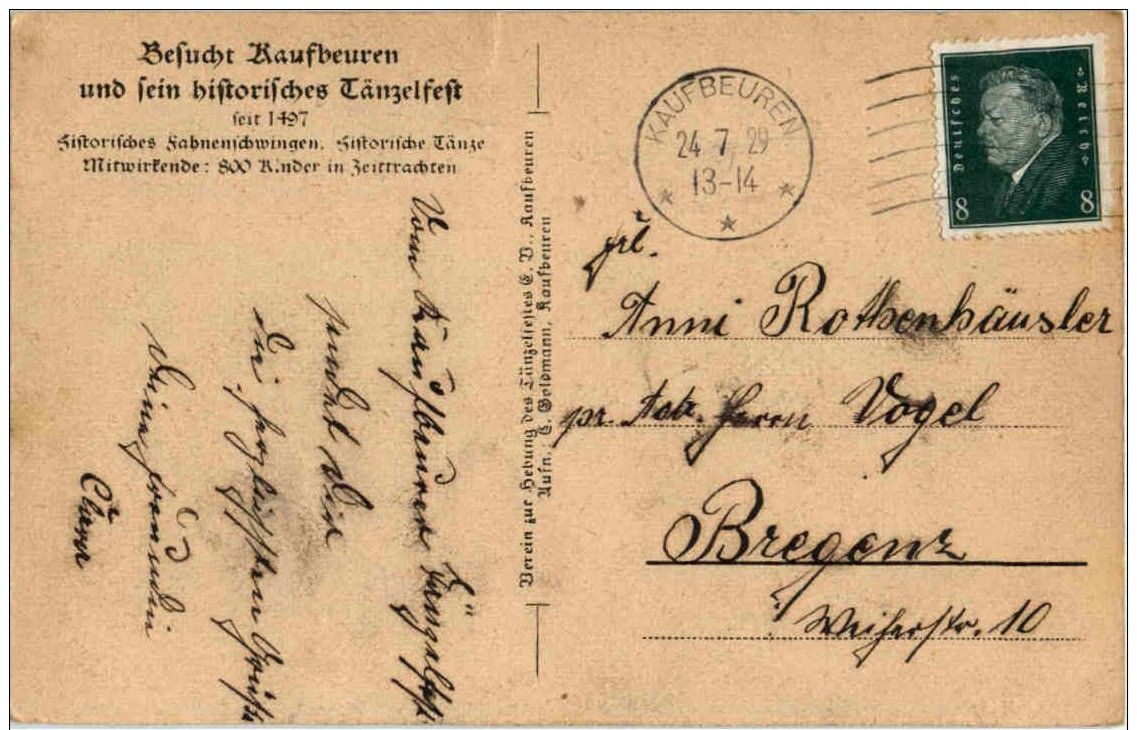 Besucht Kaufbeuren
und sein historisches Tänzelfest
seit 1497
Historisches Fahnenschwingen, Historische Tänze
Mitwirkende: 800 Kinder in Zeittrachten
Vom Kaufbeurer Tänzelfest
sendet Dir
die herzlichsten Grüße
Deine Freundin
Verein zur Hebung des Tänzelfestes E. V., Kaufbeuren
Aufn. E. Goldmann, Kaufbeuren
KAUFBEUREN
24.7.29
13-14
Deutsches Reich
8 8
Frl.
Anni Rothenhäusler
pr. Adr. Herrn Vogel
Bregenz
Weiherstr. 10